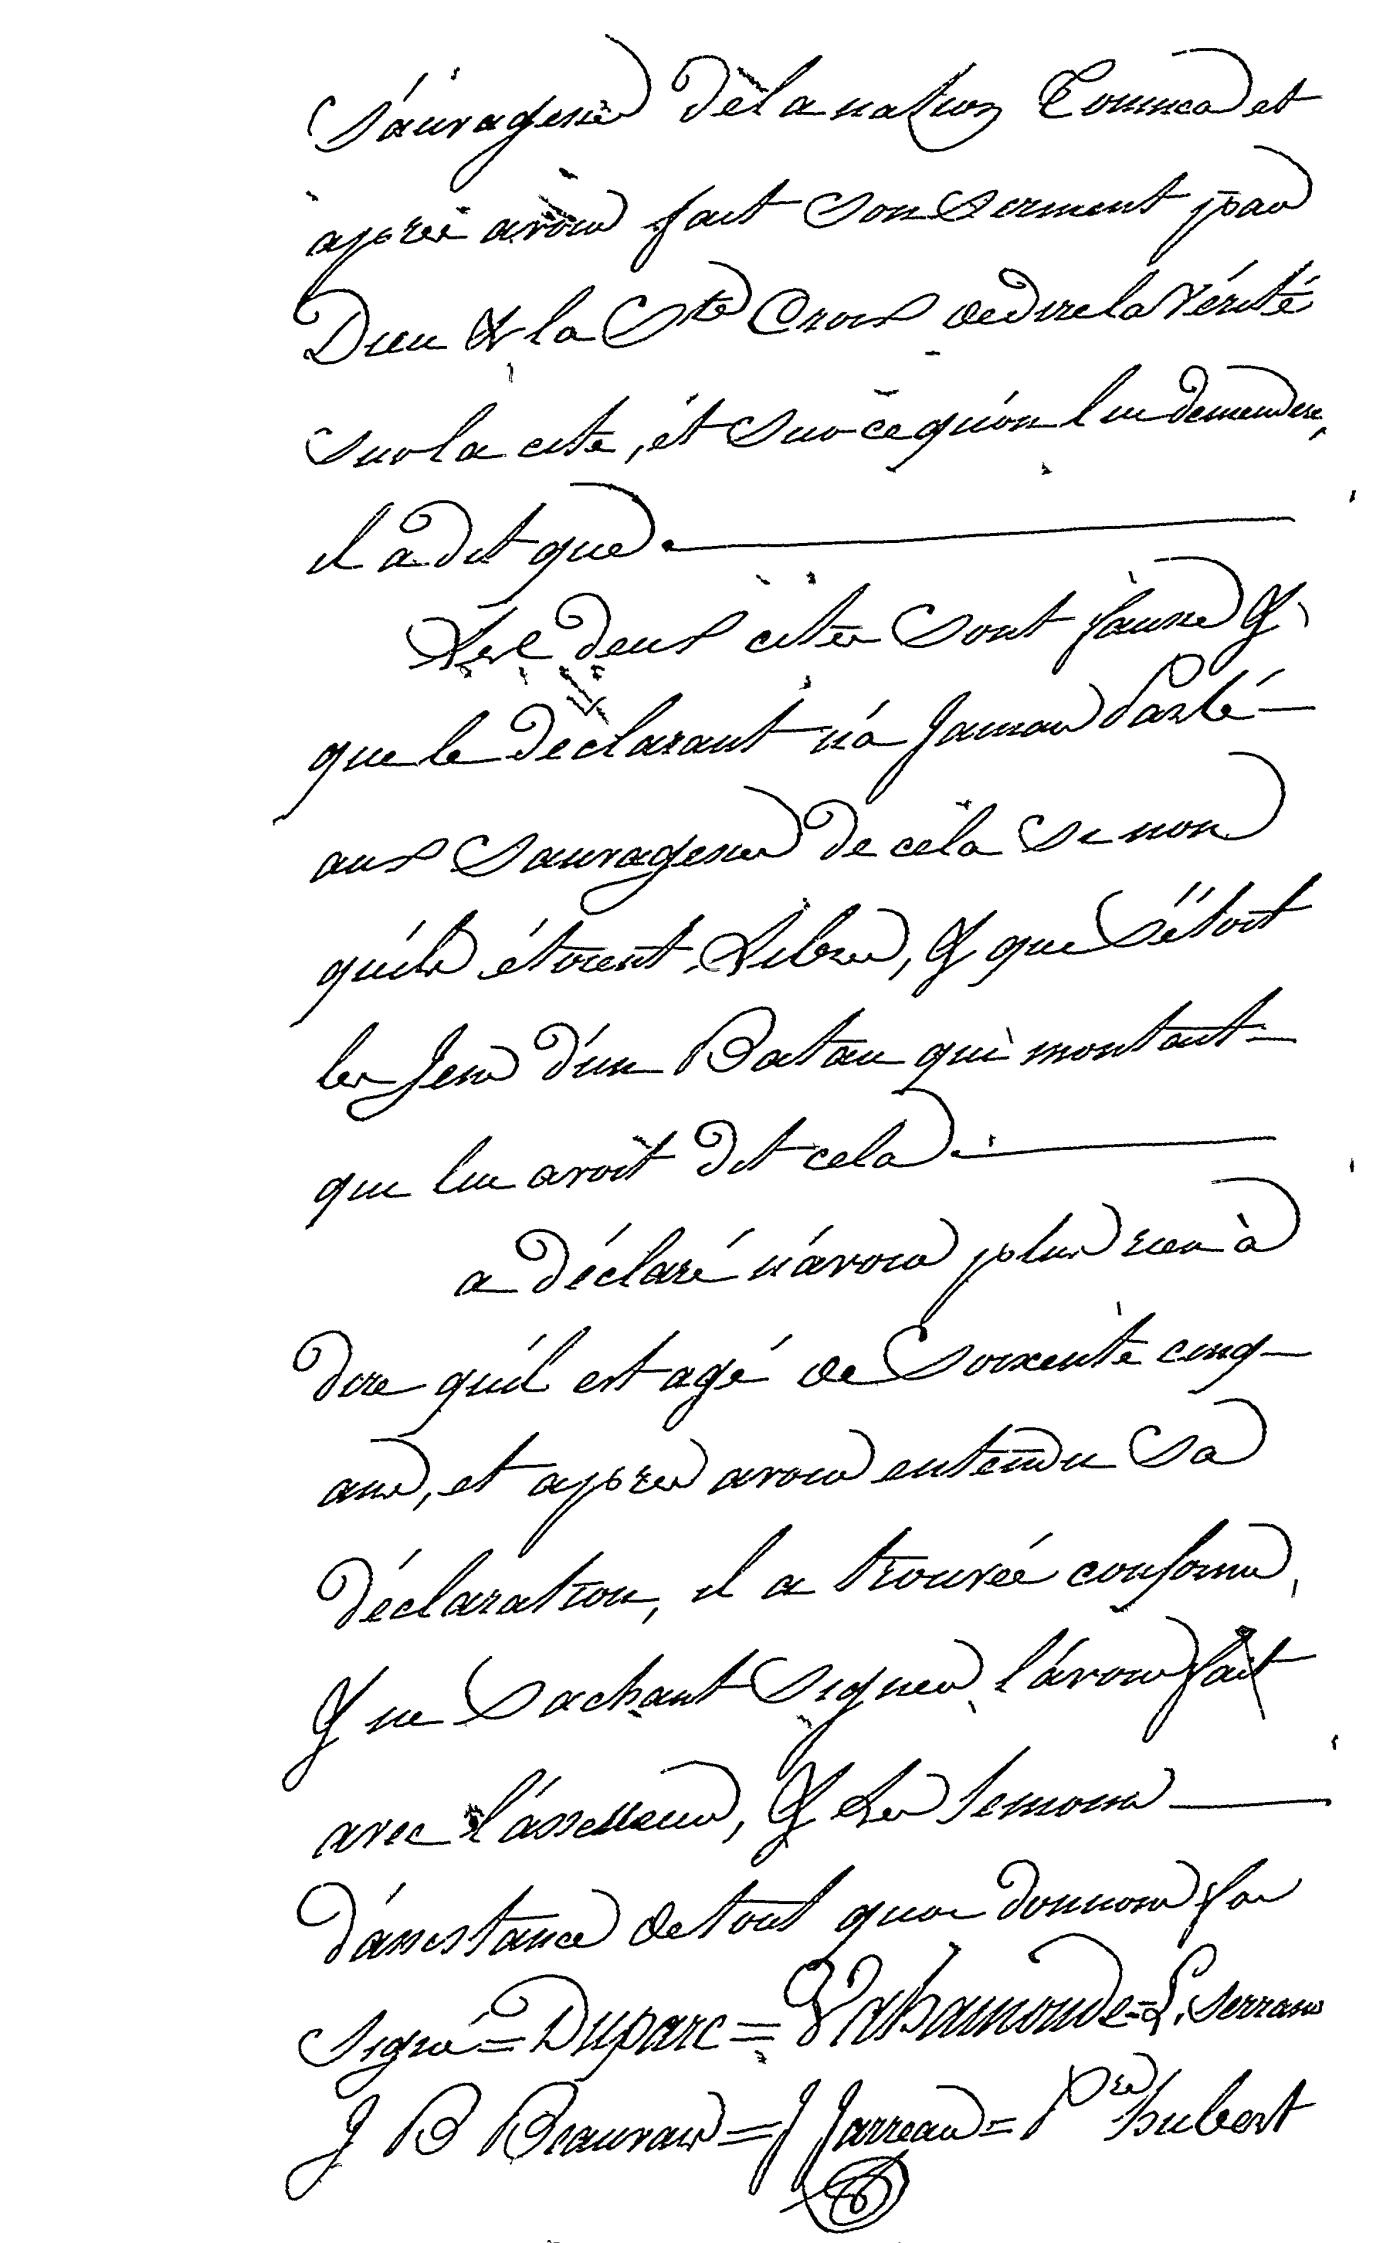 Sauvagesse de la nation Tounica et
après avoir fait Son Serment par
Dieu & la Ste Croix de dire la Vérité
sur la cité, ét Sur ce qu'on lui demendera,
il à dit que
Les deux cités Sont fausse &
que le déclarant n'á Jamais Parlé
aux Sauvagesses de céla Sinon
qu'íls étoient Libres, & que S'étoit
les Jens d'un Bateau qui montant
qui lui avoit dit cela
a déclaré n'ávoir plus rien à
dire qu'íl est agé de Soixente cinq
ans, et après avoir entendu Sa
déclaration, il a trouvée conforme,
& ne Sachant Signer l'ávons fait
avec l'ássesseur, & les temoins
d'ássistance de tout quoi donnons foi
Signé = Duparc = Vahamonde = L. Serrano
J B Beauvais = J Jarreau = Pre hubert